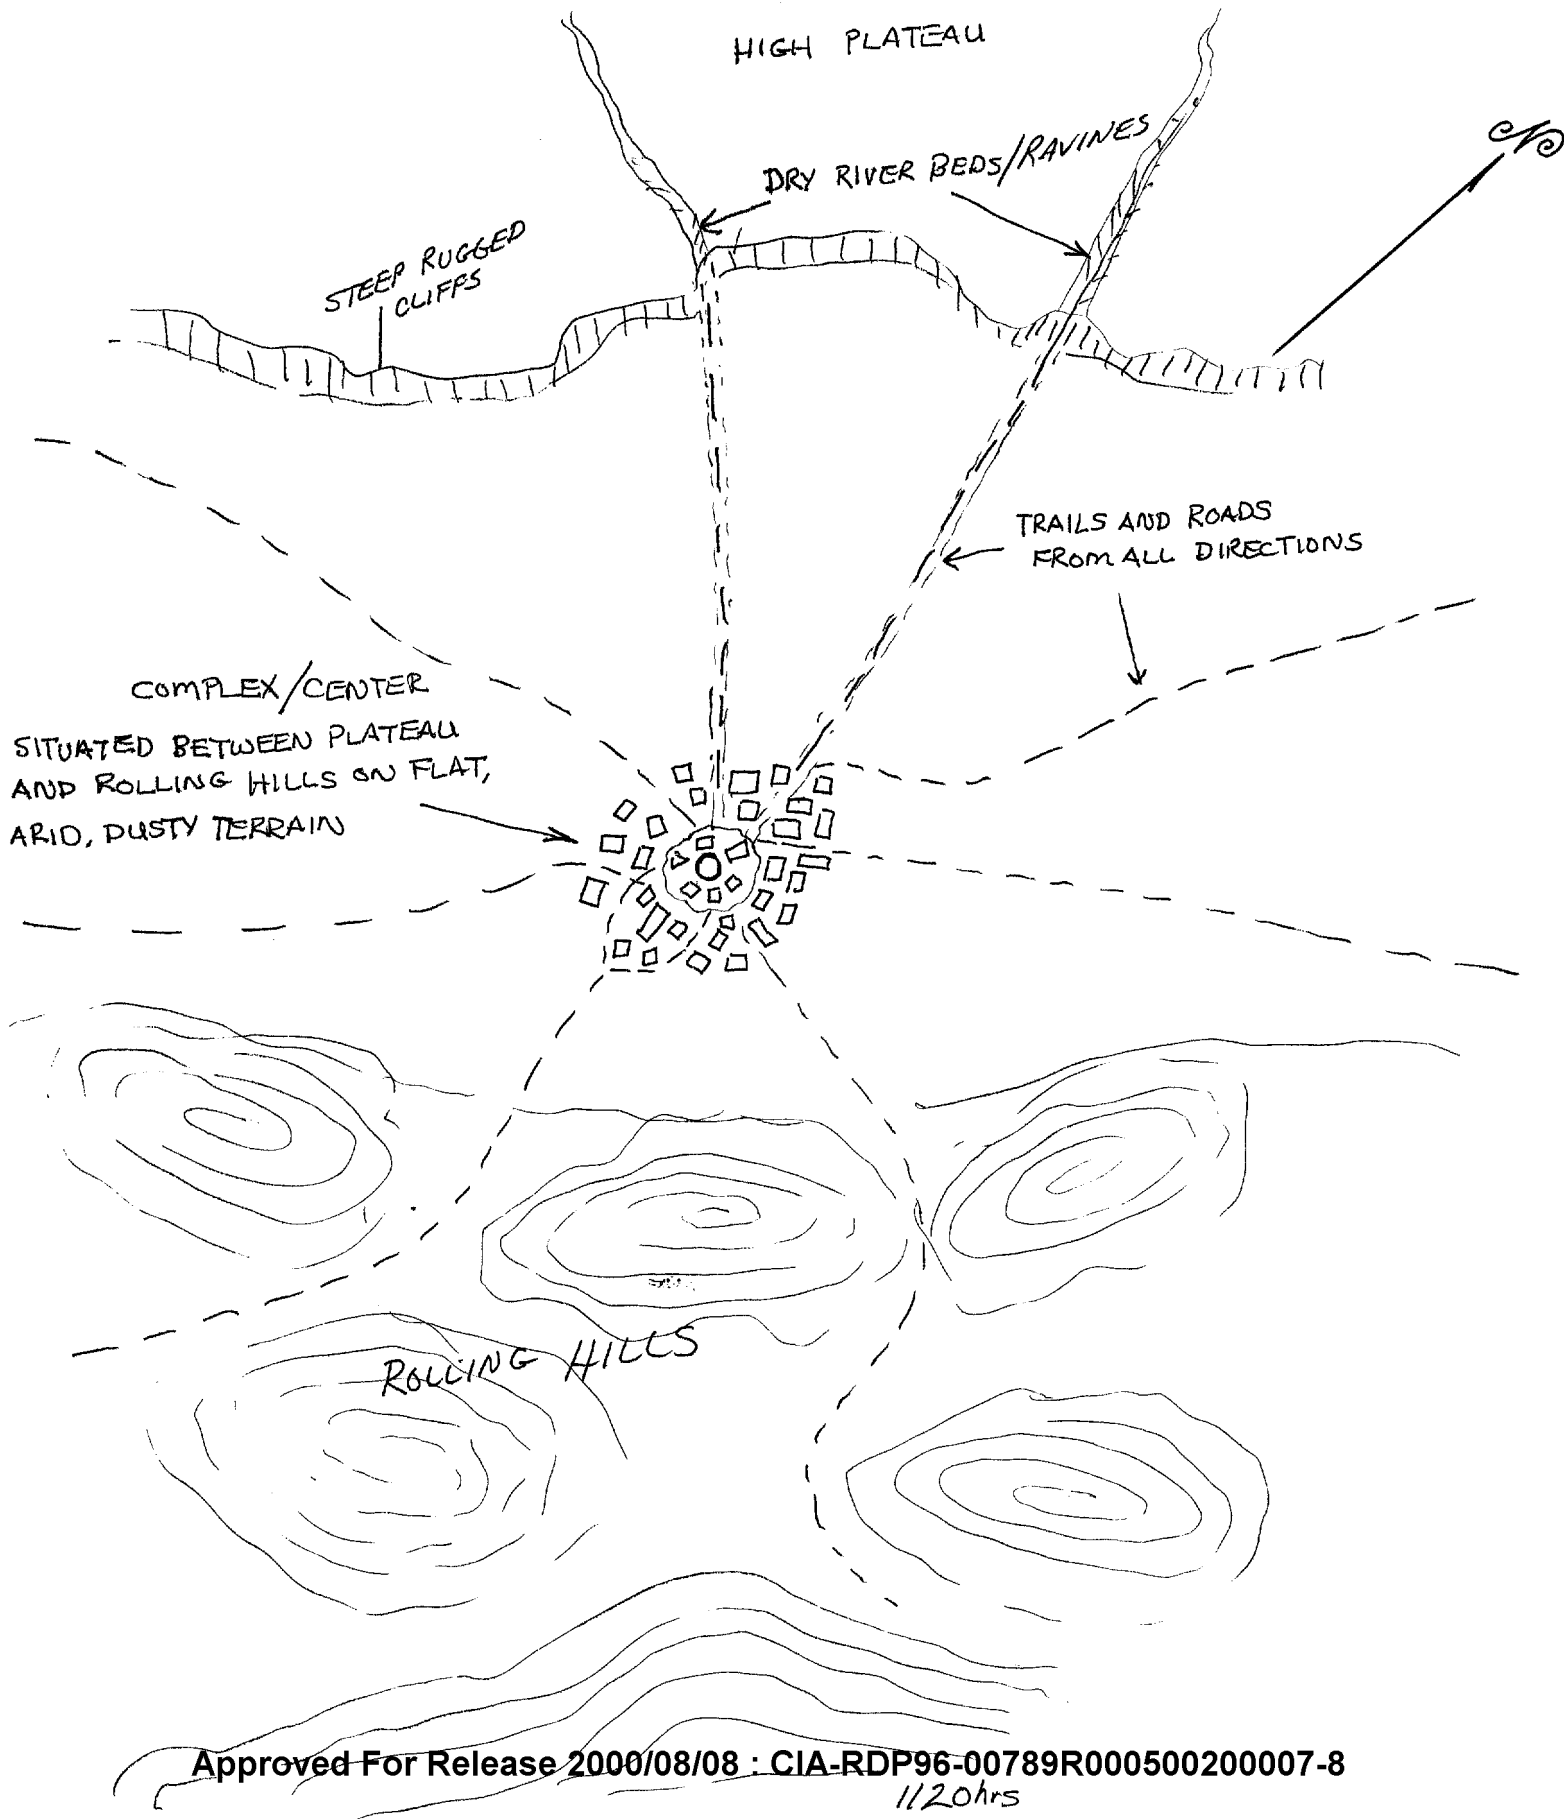 HIGH PLATEAU
N
DRY RIVER BEDS/RAVINES
STEEP RUGGED
CLIFFS
TRAILS AND ROADS
FROM ALL DIRECTIONS
COMPLEX/CENTER
SITUATED BETWEEN PLATEAU
AND ROLLING HILLS ON FLAT,
ARID, DUSTY TERRAIN
ROLLING HILLS
Approved For Release 2000/08/08 : CIA-RDP96-00789R000500200007-8
1120hrs